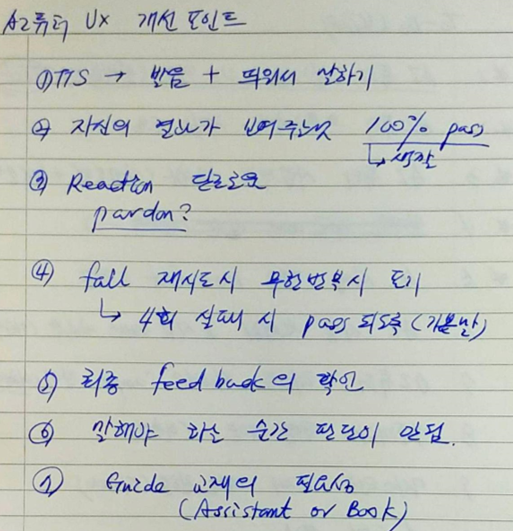 AI튜터 UX 개선 포인트
① TTS → 발음 + 띄워서 말하기
② 자신의 결과가 보여주는것 100% pass
↳ 생각
③ Reaction 단조로움
pardon?
④ fail 재시도시 무한반복시 포기
↳ 4회 실패 시 pass 되도록 (기본반)
⑤ 최종 feed back의 확인
⑥ 말해야 하는 순간 판단이 안됨.
⑦ Guide 교재의 필요성
(Assistant or Book)